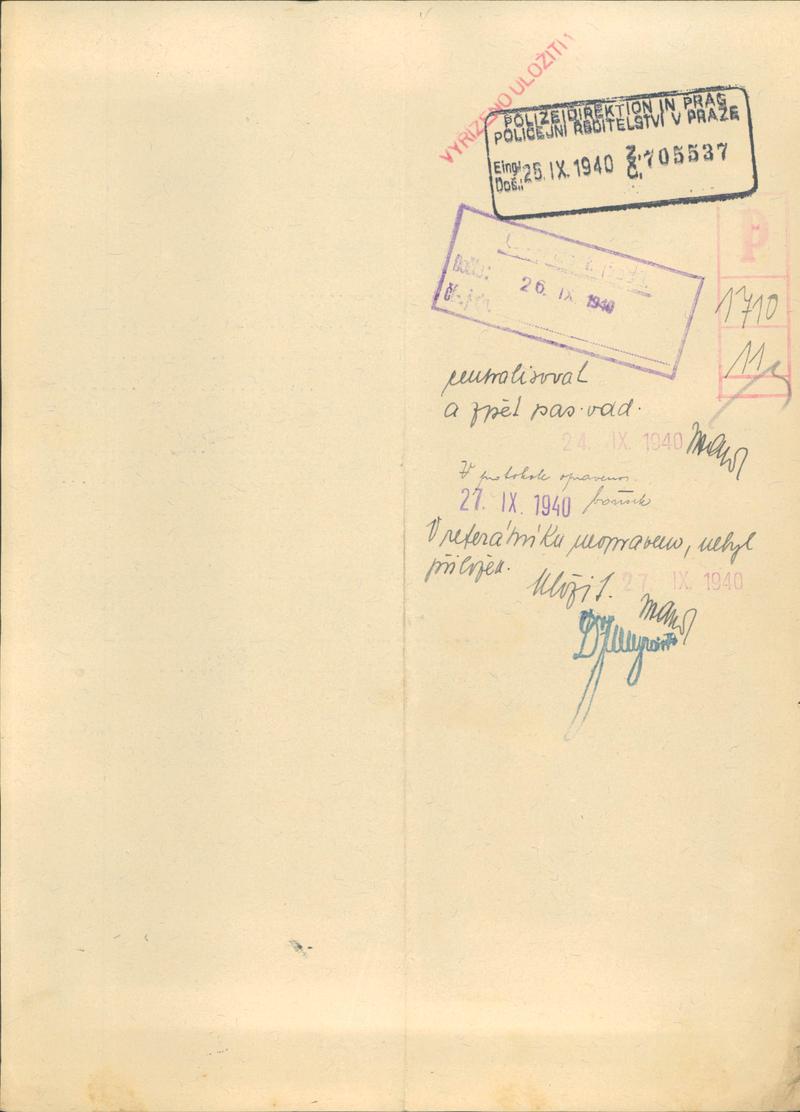 VYŘÍZENO ULOŽITI
POLIZEIDIREKTION IN PRAG
POLICEJNÍ ŘEDITELSTVÍ V PRAZE
Eingl.
Došl.
25. IX. 1940
Z.
Č.
705537
P
Došlo:
26. IX. 1940
Č. j.
1710
11
centralisovat
a zpět pas. odd.
24. IX. 1940
V protokole opraveno.
27. IX. 1940
V referátníku neopraveno, nebyl
přiložen.
Uložit.
27. IX. 1940